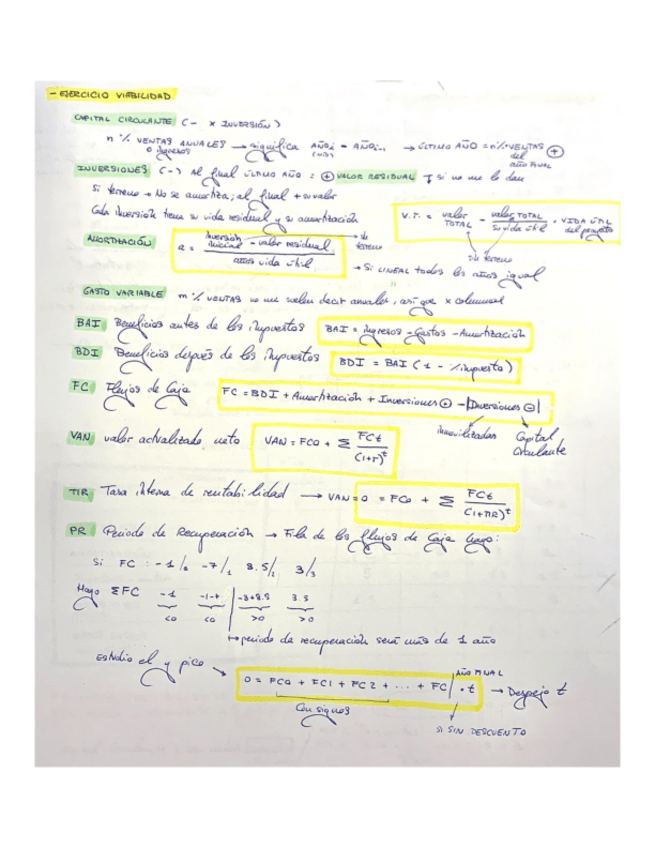 - EJERCICIO VIABILIDAD
CAPITAL CIRCULANTE (- x INVERSIÓN)
n % VENTAS ANUALES o ingresos → significa AÑOi - AÑOi-1 → ÚLTIMO AÑO = n% VENTAS del AÑO FINAL ⊕
INVERSIONES (-) Al final último AÑO = ⊕ VALOR RESIDUAL ↧ si no me lo dan
Si terreno → No se amortiza; al final + su valor
Cada inversión tiene su vida residual y su amortización
V.T. = valor TOTAL - valor TOTAL / su vida útil · VIDA ÚTIL del proyecto
sin terreno
AMORTIZACIÓN a = Inversión inicial - valor residual / años vida útil
sin terreno
→ Si LINEAL todos los años igual
GASTO VARIABLE m % VENTAS no me suelen decir anuales, así que x columnas
BAI Beneficios antes de los impuestos BAI = Ingresos - Gastos - Amortización
BDI Beneficios después de los impuestos BDI = BAI (1 - % impuesto)
FC Flujos de Caja FC = BDI + Amortización + Inversiones ⊕ - |Inversiones ⊖|
inmovilizados Capital Circulante
VAN valor actualizado neto VAN = FC0 + Σ FCt / (1+r)^t
TIR Tasa interna de rentabilidad → VAN = 0 = FC0 + Σ FCt / (1+TIR)^t
PR Periodo de Recuperación → Fila de los flujos de Caja hago:
Si FC : -1/0 -7/1 8.5/2 3/3
Hago ΣFC -1 -1-7 -8+8.5 3.5
<0 <0 >0 >0
↦ periodo de recuperación será más de 1 año
Estudio el y pico → 0 = FC0 + FC1 + FC2 + ... + FC | AÑO FINAL · t → Despejo t
Con signos
SI SIN DESCUENTO